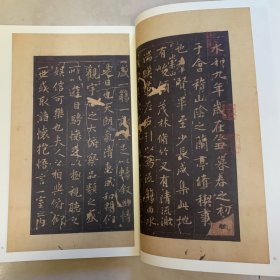 永和九年歲在癸丑暮春之初
于會稽山陰之蘭亭脩稧事
也群賢畢至少長咸集此地
有崇山峻領茂林脩竹又有清流激
湍暎帶左右引以為流觴曲水
一觴一詠亦足以暢敘幽情
是日也天朗氣清惠風和暢仰
觀宇宙之大俯察品類之盛
所以遊目騁懷足以極視聽之
娛信可樂也夫人之相與俯仰
一世或取諸懷抱悟言一室之內